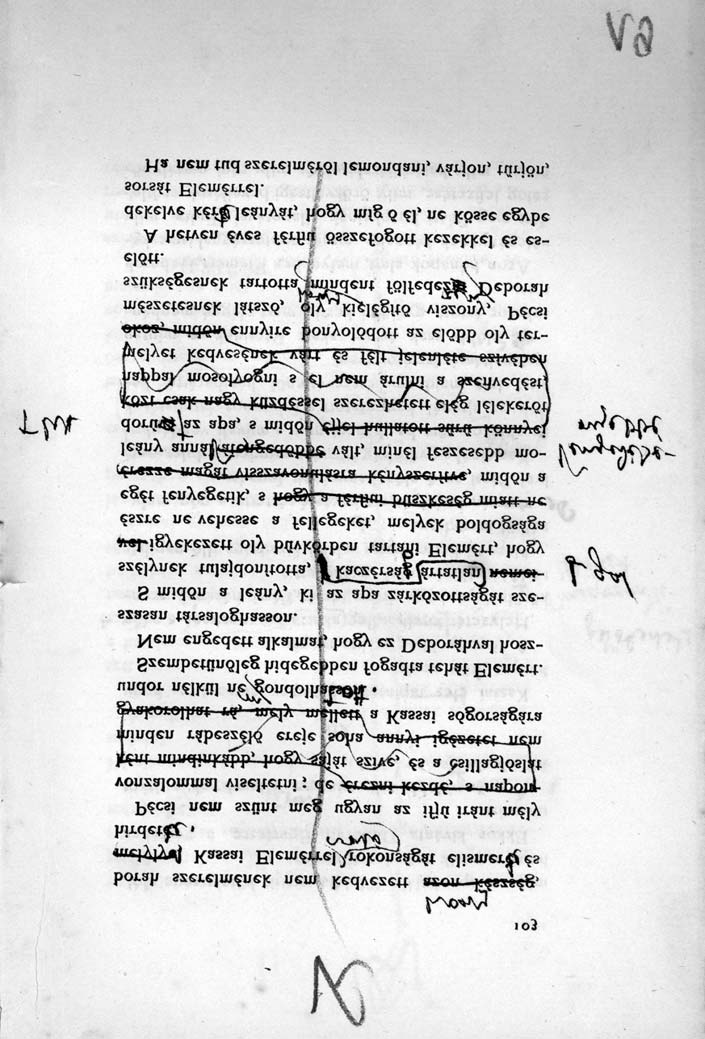 103
hogy
borah szerelmének nem kedvezett azon készség,
melylyel Kassai Elemérrel rokonságát elismerte és
hirdette.
Pécsi nem szünt meg ugyan az ifjú iránt mély
vonzalommal viseltetni; de érezni kezdé, s napon-
ként mindinkább, hogy saját szive, és a csillagjóslat
minden rábeszélő ereje soha annyi igézetet nem
gyakorolhat rá, mely mellett a Kassai sógorságára
undor nélkül ne gondolhatott.
Szembetünőleg hidegebben fogadta tehát Elemért.
Nem engedett alkalmat, hogy ez Deboráhval hosz-
szasan társaloghasson.
S midőn a leány, ki az apa zárkózottságát sze-
szélynek tulajdonitotta, kaczérság ártatlan nemei-
vel igyekezett oly büvkörben tartani Elemért, hogy
észre ne vehesse a fellegeket, melyek boldogsága
egét fenyegetik, s hogy a férfiui büszkeség miatt ne
érezze magát visszavonulásra kényszeritve, midőn a
leány annál vált, minél feszesebb mo-
dorú az apa, s midőn éjjel hullatott sürü könnyei
közt csak nagy küzdéssel szerezhetett elég lélekerőt
nappal mosolyogni s el nem árulni a szenvedést,
melyet kedvesének várt és félt jelenléte szivében
okoz, midőn ennyire bonyolódott az előbb oly ter-
mészetesnek látszó, oly kielégitő viszony, Pécsi
szükségesnek tartotta mindent fölfedezni Deborah
előtt.
A hetven éves férfiu összefogott kezekkel és es-
dekelve kérte leányát, hogy mig ő él, ne kösse egybe
sorsát Elemérrel.
Ha nem tud szerelméről lemondani, várjon, türjön,